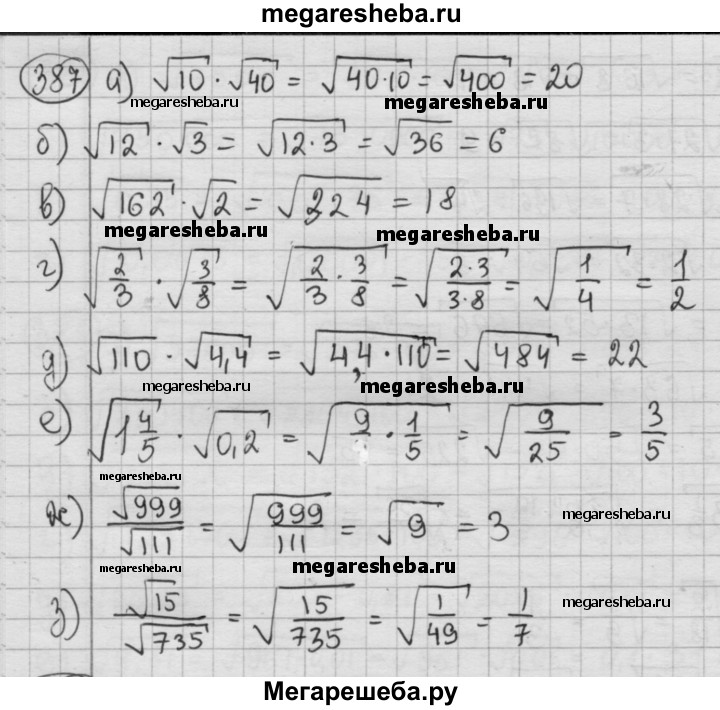 megaresheba.ru
387 а) √10 · √40 = √40·10 = √400 = 20
megaresheba.ru megaresheba.ru
б) √12 · √3 = √12·3 = √36 = 6
в) √162 · √2 = √324 = 18
megaresheba.ru megaresheba.ru
г) √2/3 · √3/8 = √2/3 · 3/8 = √2·3/3·8 = √1/4 = 1/2
д) √110 · √4,4 = √4,4·110 = √484 = 22
megaresheba.ru megaresheba.ru
е) √1 4/5 · √0,2 = √9/ · 1/5 = √9/25 = 3/5
megaresheba.ru
ж) √999/√111 = √999/111 = √9 = 3
megaresheba.ru
megaresheba.ru megaresheba.ru
з) √15/√735 = √15/735 = √1/49 = 1/7
megaresheba.ru
Мегарешеба.ру